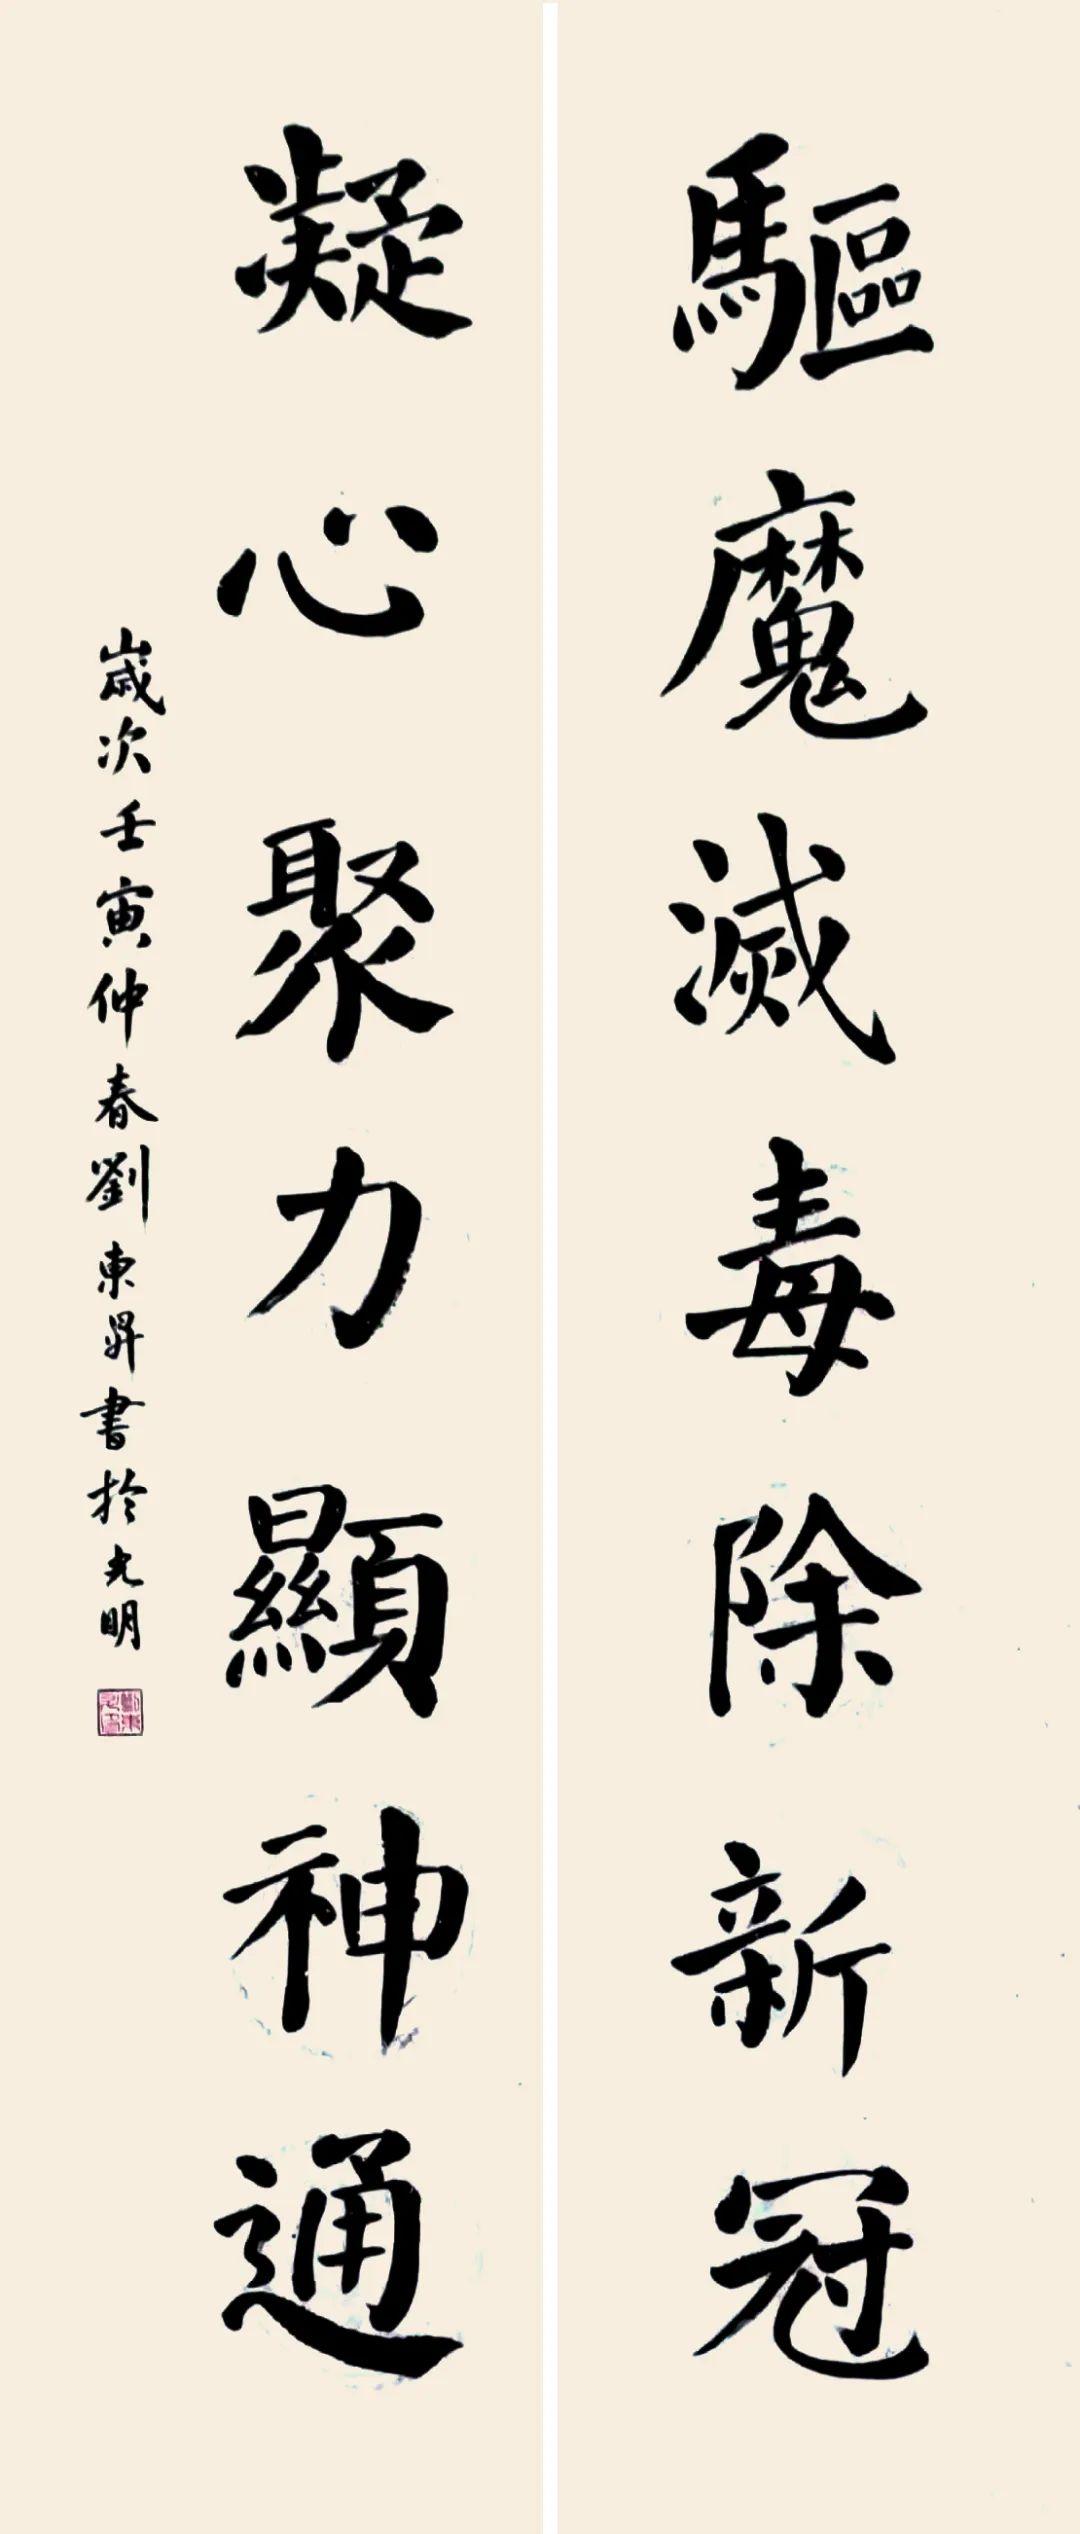 驅魔滅毒除新冠
凝心聚力顯神通
歲次壬寅仲春劉東昇書於光明